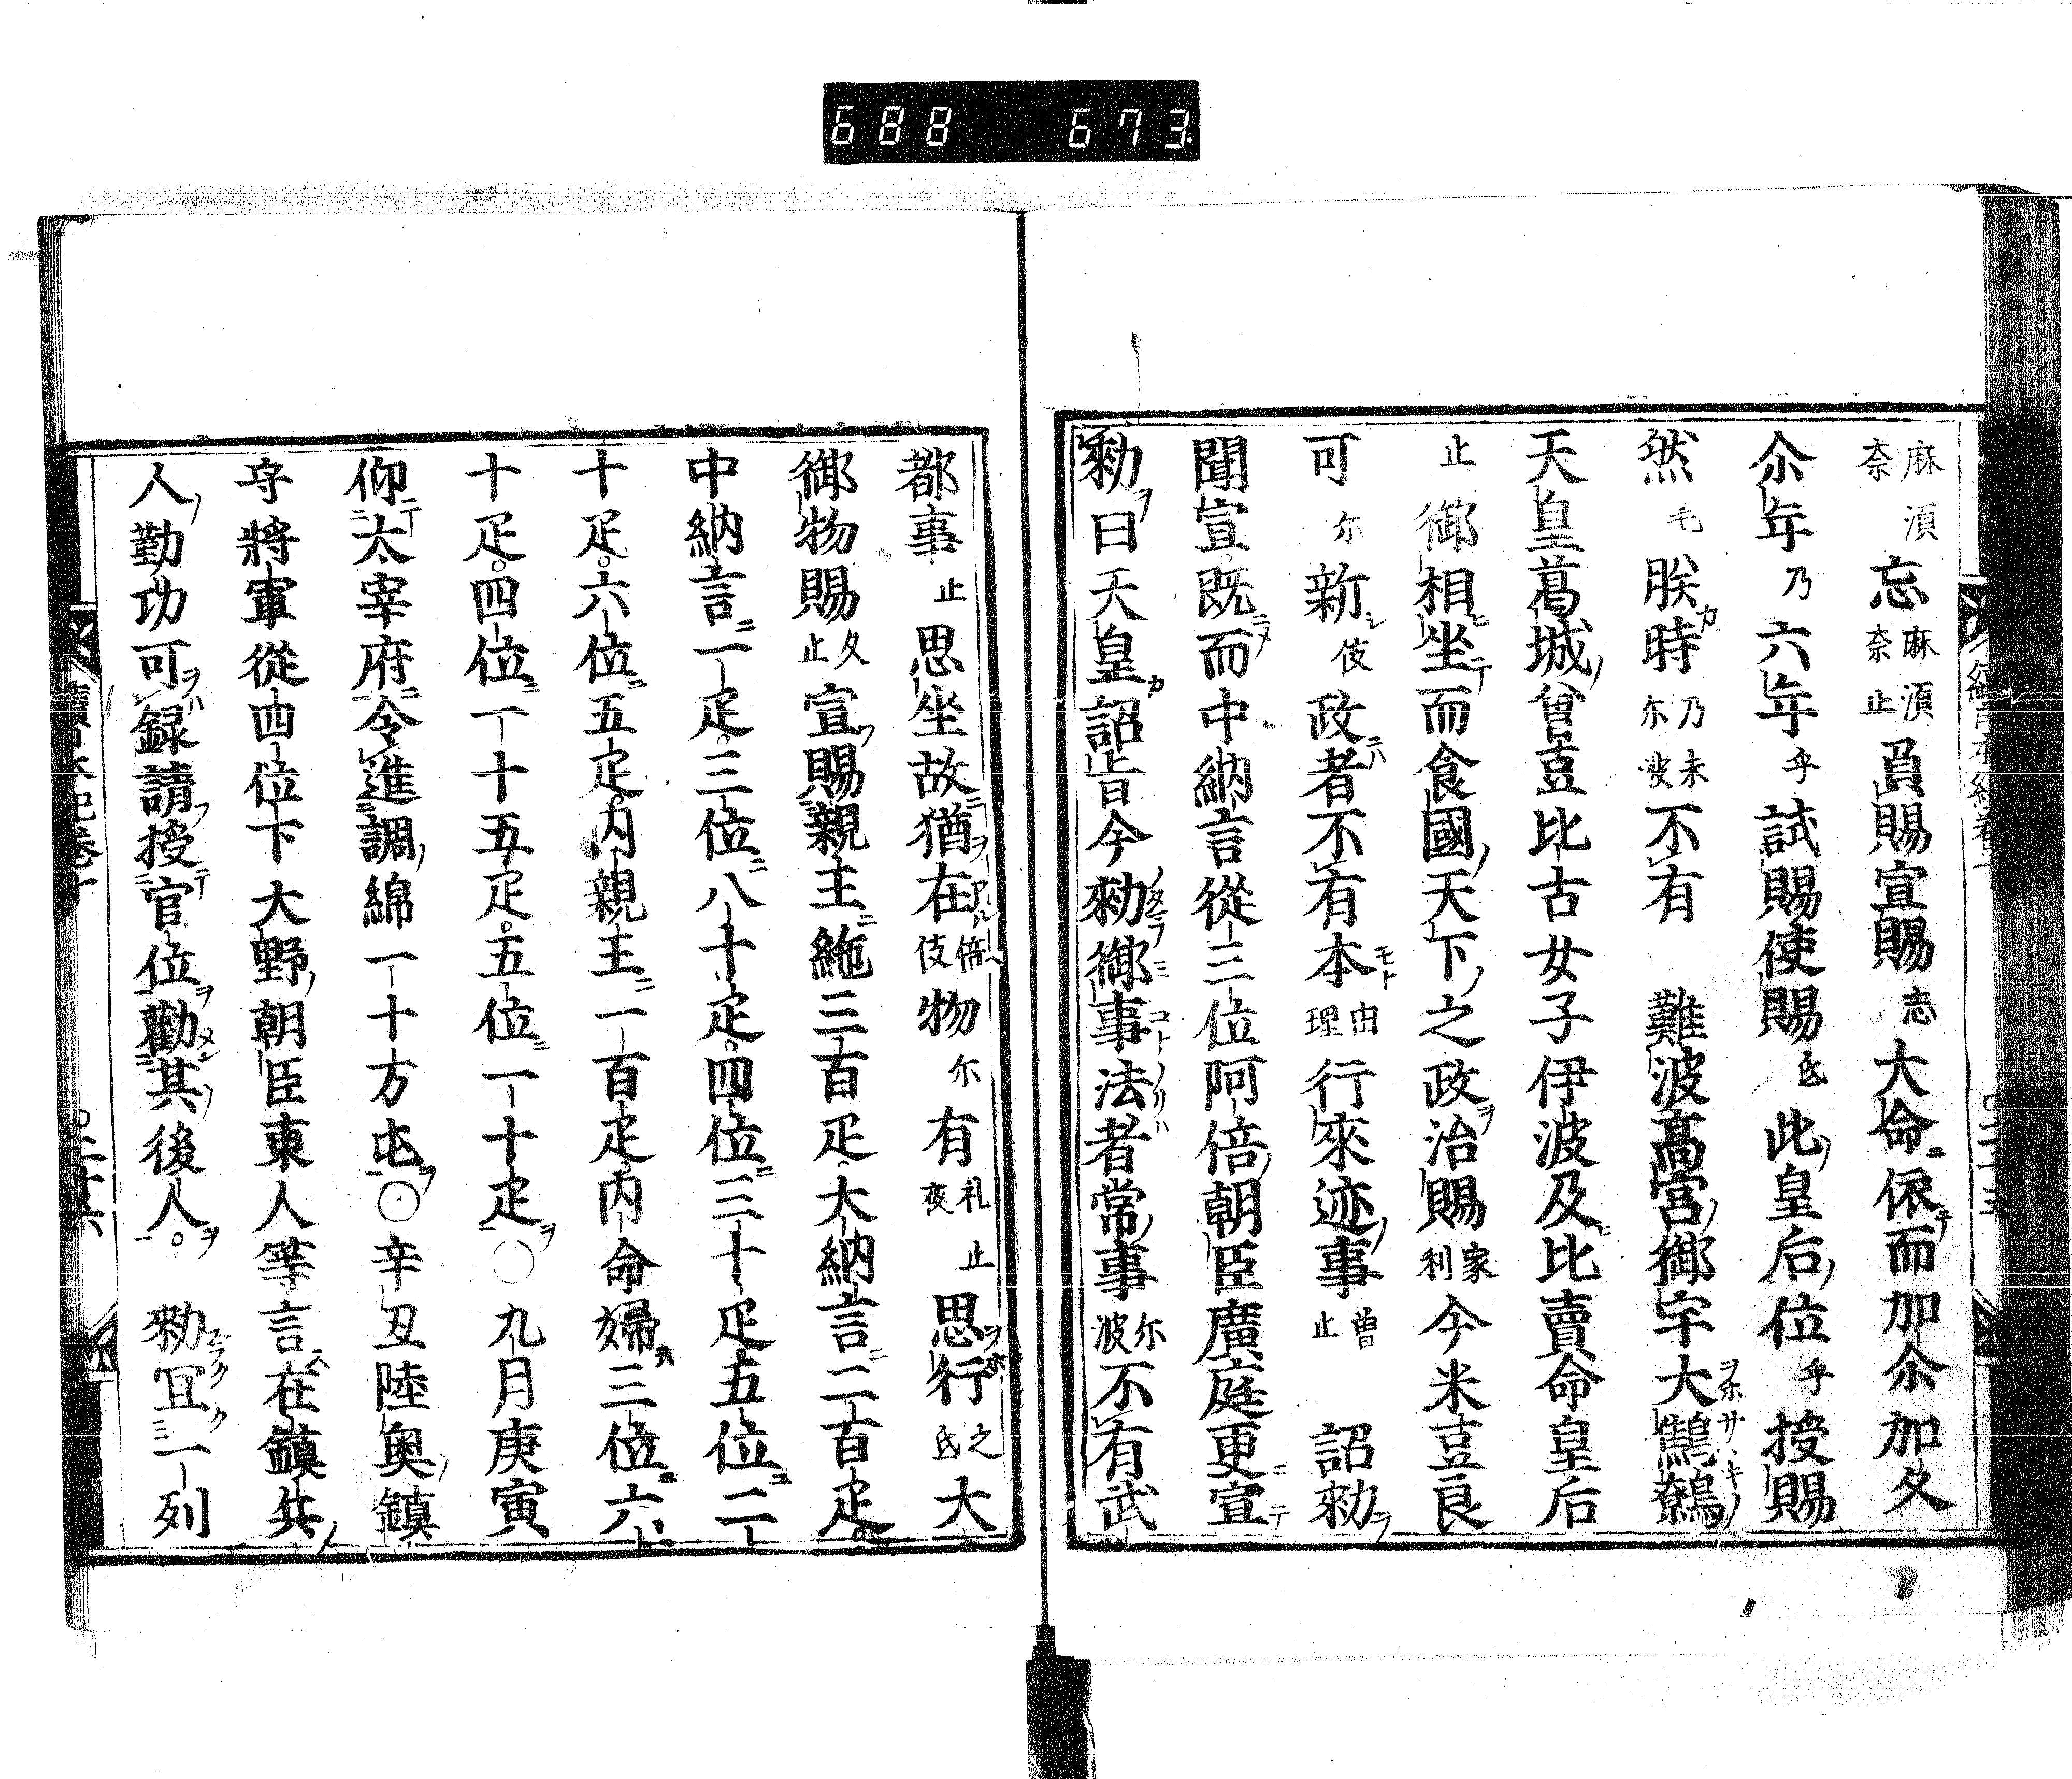 688 673
麻奈湏忘麻奈湏止負賜宣賜志大命依而加尒加久
尒年乃六年乎試賜使賜氐此皇后位乎授賜
然毛朕時乃尓未波不有難波髙宮御宇大鷦鷯
天皇葛城曾豆比古女子伊波乃比賣命皇后
止御相坐而食國天下之政治賜家利今米豆良
可尓新伎政者不有本由理行來迹事曽止詔勑
聞宣既而中納言從三位阿倍朝臣廣庭更宣
勑曰天皇詔旨今勑御事法者常事尓波不有武
都事止思坐故猶在倍伎物尓有礼夜止思行之氐大
御物賜久止宣賜親王絁三百疋大納言二百疋
中納言一百疋三位八十疋四位三十疋五位二
十疋六位五疋内親王一百疋内命婦三位六
十疋四位一十五疋五位一十疋○九月庚寅
仰太宰府令進調綿一十万屯○辛丑陸奥鎮
守將軍從四位下大野朝臣東人等言在鎮兵
人勤功可録請授官位勸其後人勑宜一列